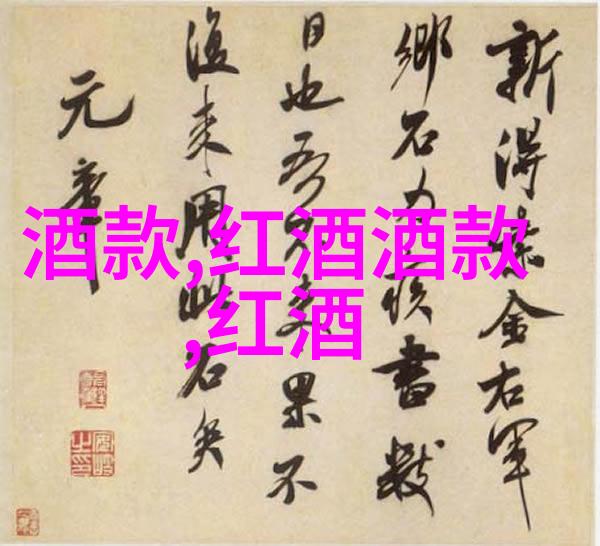 新得紫金右軍
鄉石力疾書數
日也吾果不
復来用此石矣
元章
酒款,红酒酒款
,红酒